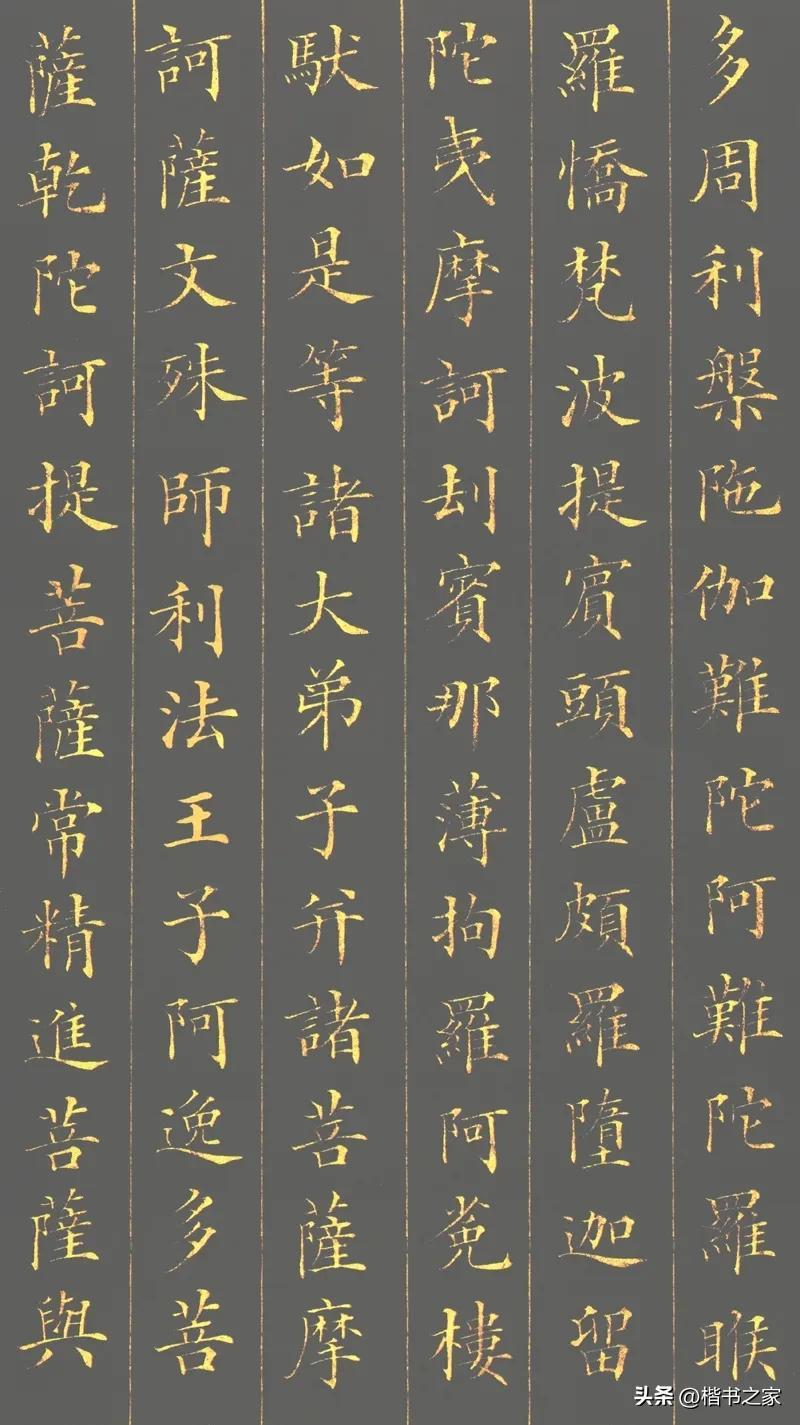 多周利槃陁伽難陀阿難陀羅睺
羅憍梵波提賓頭盧頗羅墮迦留
陀夷摩訶刦賓那薄拘羅阿㝹樓
馱如是等諸大弟子并諸菩薩摩
訶薩文殊師利法王子阿逸多菩
薩乾陀訶提菩薩常精進菩薩與
头条 @楷书之家